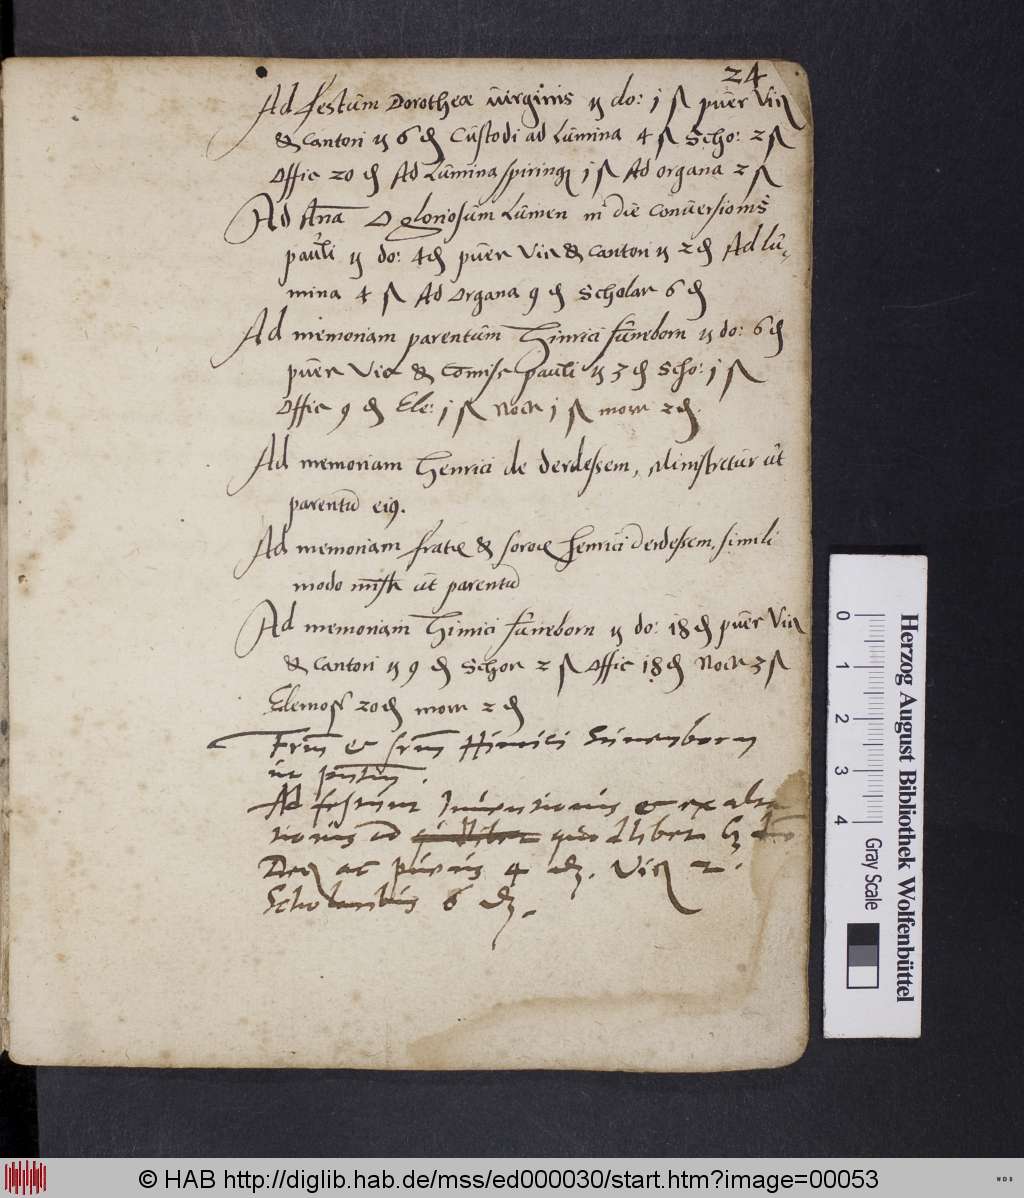 24
Ad festum Dorotheæ virginis ꝗ do: j ß puer Vic
& Cantori ꝗ 6 ₰ Custodi ad Lumina 4 ß Scho: 2 ß
Offic 20 ₰ Ad Lumina 1 ß Ad organa 2 ß
Ad O gloriosum Lumen in die conversionis
pauli ꝗ do: 4 ₰ puer Vic & Cantori ꝗ 2 ₰ Ad lu-
mina 4 ß Ad Organa 9 ₰ Scholar 6 ₰
Ad memoriam parentum Hinrici suneborn ꝗ do: 6 ₰
puer Vic & Comiss pauli ꝗ 3 ₰ Scho: j ß
Offic 9 ₰ Ele: j ß Noct j ß 2 ₰
Ad memoriam Henrici de Derdessem, Ministretur ut
parentu eiꝰ.
Ad memoriam & soror Henrici Derdessem, simili
modo ut parentu
Ad memoriam Hinrici Suneborn ꝗ do: 18 ₰ puer Vic
& Cantori ꝗ 9 ₰ Schor 2 ß Offic 18 ₰ Noct 3 ß
Elemos 20 ₰ 2 ₰
et Hinrici Sunenborn
ut
Ad festum Inuentionis et exalta
tionis quodlibet
ac 4 ₰. Vic 2.
Scholaribus 6 ₰.
Herzog August Bibliothek Wolfenbüttel
0 1 2 3 4
Gray Scale
© HAB http://diglib.hab.de/mss/ed000030/start.htm?image=00053